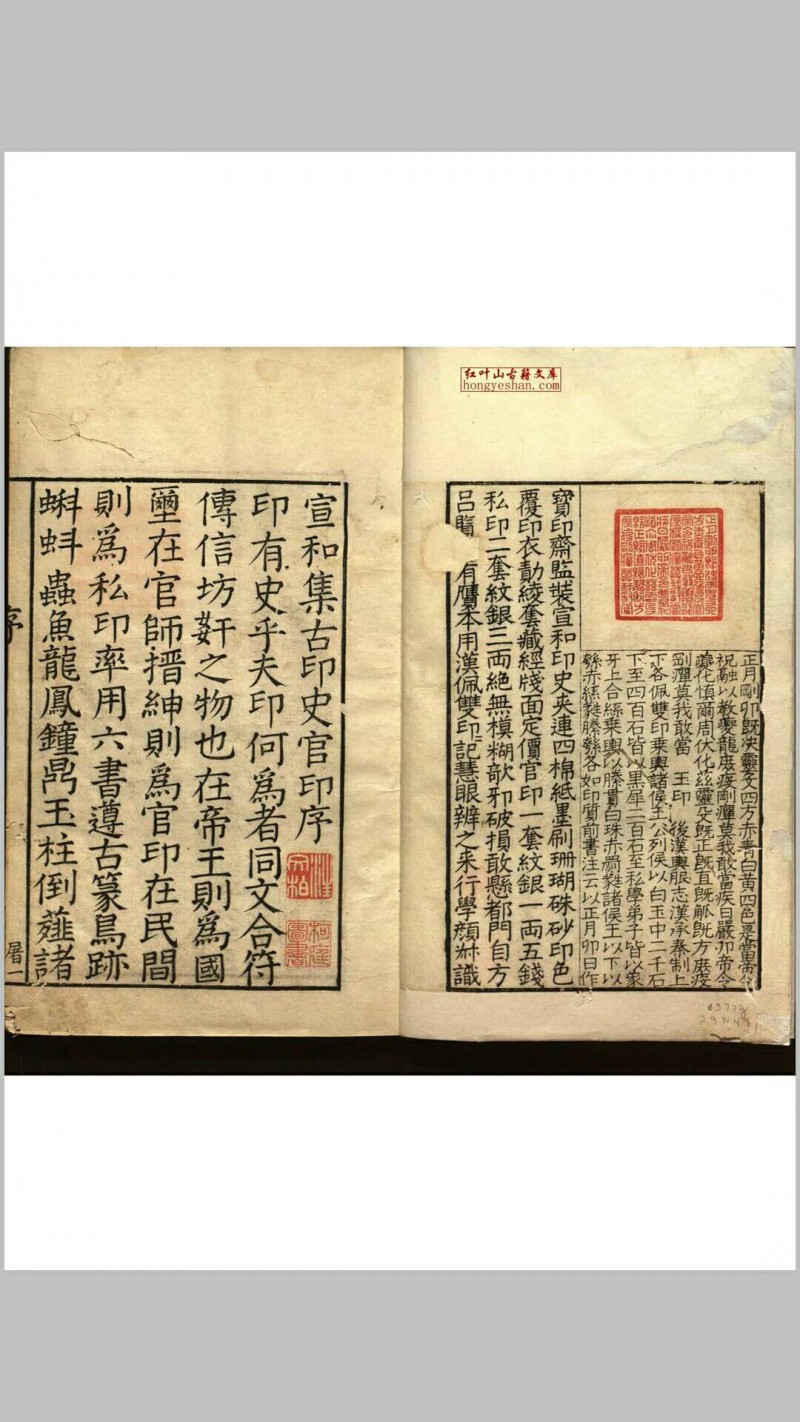 红叶山古籍文库
hongyeshan.com
正月剛卯既決靈殳四方赤青白黃四色是當帝令
祝融以教夔龍庶疫剛癉莫我敢當疾日嚴卯帝令
夔化慎爾周伏化茲靈殳既正既直既觚既方庶疫
剛癉莫我敢當 玉印 後漢輿服志漢承秦制上
下各佩雙印乗輿諸侯王公列侯以白玉中二千石
下至四百石皆以黑犀二百石至私學弟子皆以象
牙上合絲乗輿以縢貫白珠赤罽蕤諸侯王以下以
綔赤絲蕤縢綔各如印質前書注云以正月卯日作
寶印齋監裝宣和印史夾連四棉紙墨刷珊瑚硃砂印色
覆印衣㔢綾套藏經牋面定價官印一套紋銀一両五錢
私印二套紋銀三両絶無模糊欹邪破損敢懸都門自方
呂覽 有贋本用漢佩雙印記慧眼辨之来行學顔叔識
宣和集古印史官印序
印有史乎夫印何為者同文合符
傳信坊姧之物也在帝王則為國
壐在官師搢紳則為官印在民間
則為私印率用六書遵古篆鳥跡
蝌蚪蟲魚龍鳳鐘鼎玉柱倒薤諸
序
屠一